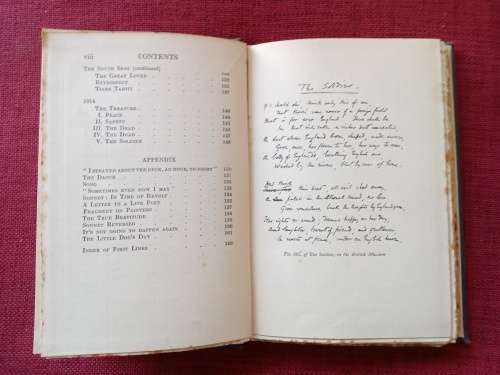 viii CONTENTS
THE SOUTH SEAS (continued)
THE GREAT LOVER
RETROSPECT
TIARE TAHITI
1914
THE TREASURE
I. PEACE
II. SAFETY
III. THE DEAD
IV. THE DEAD
V. THE SOLDIER
APPENDIX
THE DANCE
SONG
"SOMETIMES EVEN NOW I MAY"
SONNET: IN TIME OF REVOLT
A LETTER TO A LIVE POET
FRAGMENT ON PAINTERS
THE TRUE BEATITUDE
SONNET REVERSED
IT'S NOT GOING TO HAPPEN AGAIN
THE LITTLE DOG'S DAY
INDEX OF FIRST LINES
The Soldier.
If I should die, think only this of me:
That there's some corner of a foreign field
That is for ever England. There shall be
In that rich earth a richer dust concealed;
A dust whom England bore, shaped, made aware,
Gave, once, her flowers to love, her ways to roam,
A body of England's, breathing English air,
Washed by the rivers, blest by suns of home.
And think this heart, all evil shed away,
A pulse in the eternal mind, no less
Gives somewhere back the thoughts by England given,
Her sights and sounds; dreams happy as her day;
And laughter, learnt of friends; and gentleness,
In hearts at peace, under an English heaven.
The MS. of The Soldier, in the British Museum